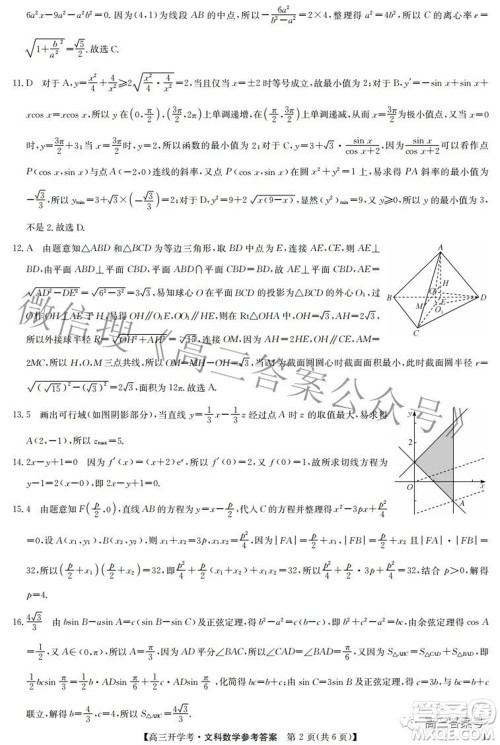 6a²x-9a²-a²b²=0.因为(4,1)为线段 AB 的中点,所以-6a²/(b²-a²)=2×4,整理得 a²=4b².所以 C 的离心率 e=
√(1+b²/a²)=√5/2.故选 C.
11.D 对于 A,y=x²/4+4/x²≥2√(x²/4·4/x²)=2,当且仅当 x=±2 时等号成立,故最小值为 2;对于 B,y′=-sin x+sin x+
xcos x=xcos x,所以 y 在(0,π/2),(3π/2,2π)上单调递增,在(π/2,3π/2)上单调递减,从而 x=3π/2为极小值点,又当 x=0
时,y=3π/2+3;当 x=3π/2时,y=3π/2+2,故函数的最小值为 2;对于 C,y=3+√3·sin x/(cos x+2),因为sin x/(cos x+2)可以看作点
P(cos x,sin x)与点 A(-2,0)连线的斜率,又点 P(cos x,sin x)在圆 x²+y²=1 上,易求得 PA 斜率的最小值为
-√3/3,所以 yₘᵢₙ=3+√3×(-√3/3)=2;对于 D,y²=9+2√(x(9-x)),易得(y²)ₘᵢₙ=9,又 y≥0,所以 y 的最小值为 3,
不是 2.故选 D.
12.A 由题意知△ABD 和△BCD 为等边三角形,取 BD 中点为 E,连接 AE,CE,则 AE⊥
BD,由平面 ABD⊥平面 CBD,平面 ABD∩平面 CBD=BD,故 AE⊥平面 CBD,AE=
√(AD²-DE²)=√(6²-3²)=3√3,易知球心 O 在平面 BCD 的投影为△BCD 的外心 O₁,过
O 作 OH⊥AE 于 H,易得 OH∥O₁E,OO₁∥HE,则在 Rt△OHA 中,OH=√3,AH=2√3,
所以外接球半径 r=√(OH²+AH²)=√15,连接 OM,因为 AH=2HE,OH∥CE,AM=
2MC,所以 H,O,M 三点共线,所以 OM=MH-OH=√3,当 M 为截面圆圆心时截面面积最小,此时截面圆半径 r=
√((√15)²-(√3)²)=2√3,面积为 12π.故选 A.
13.5 画出可行域(如图阴影部分),当直线 y=1/3x-1/3z 经过点 A 时 z 的取值最大,易求得
A(2,-1),所以 zₘₐₓ=5.
14.2x-y+1=0 因为 f′(x)=(x+2)eˣ,所以 f′(0)=2,又 f(0)=1,故所求切线方程为
y-1=2x,即 2x-y+1=0.
15.4 由题意知 F(p/2,0),直线 AB 的方程为 y=x-p/2,代入 C 的方程并整理得 x²-3px+p²/4
=0,设 A(x₁,y₁),B(x₂,y₂),则 x₁+x₂=3p,x₁x₂=p²/4.因为|FA|=p/2+x₁,|FB|=p/2+x₂,且|FA|·|FB|=
32,所以(p/2+x₁)(p/2+x₂)=32,整理得p²/4+p/2(x₁+x₂)+x₁x₂=32,所以p²/4+p/2·3p+p²/4=32,结合 p>0,解得
p=4.
16.4√3/3 由 bsin B-asin A=c(sin B-sin C)及正弦定理,得 b²-a²=c(b-c),即 b²+c²-a²=bc,由余弦定理得 cos A=
1/2,又 A∈(0,π),所以 A=π/3,因为 AD 平分∠BAC,所以∠DAC=∠DAB=π/6,又因为 S△ABC=S△CAD+S△BAD,即
1/2bcsin π/3=1/2b·ADsin π/6+1/2c·ADsin π/6,化简得 bc=b+c;由 csin B=4sin C 及正弦定理,得 bc=4c,即 b=4,
c=4/3,所以 S△ABC=1/2bcsin A=4√3/3.
微信搜《高三答案公众号》
A
B
C
D
E
H
O
M
y
x
O
A
【高三开学考·文科数学参考答案 第 2 页(共 6 页)】
高三答案号